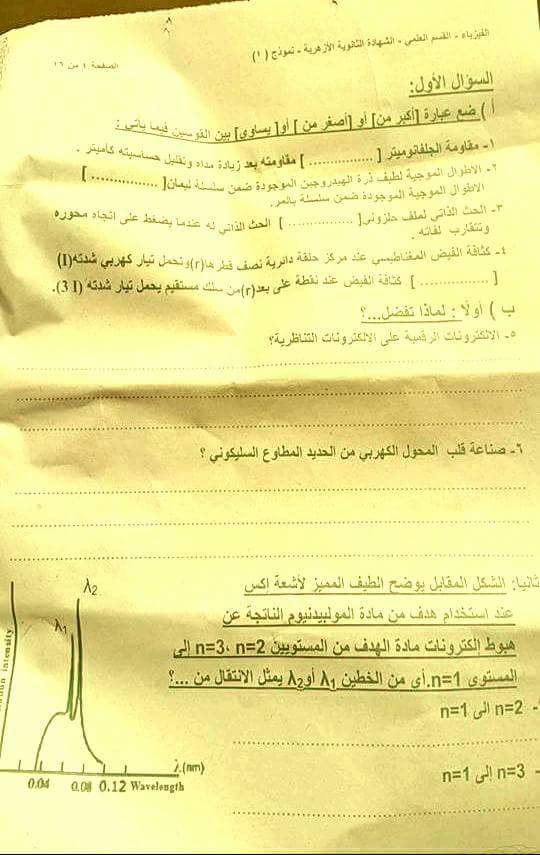 الفيزياء - القسم العلمي - الشهادة الثانوية الأزهرية - نموذج ( ١ )
الصفحة ٤ من ١٦
السؤال الأول:
أ ) ضع عبارة [أكبر من] أو [أصغر من ] أو [يساوي ] بين القوسين فيما يأتي :
١- مقاومة الجلفانوميتر [ ............... ] المقاومة بعد زيادة مداه وتقليل حساسيته كأميتر .
٢- الأطوال الموجية لطيف ذرة الهيدروجين الموجودة ضمن سلسلة ليمان[ ............... ]
الأطوال الموجية الموجودة ضمن سلسلة بالمر.
٣- الحث الذاتي لملف حلزوني[ ............... ] الحث الذاتي له عندما يضغط على اتجاه محوره
وتتقارب لفاته .
٤- كثافة الفيض المغناطيسي عند مركز حلقة دائرية نصف قطرها(r)وتحمل تيار كهربي شدته(I)
[ ............... ] كثافة الفيض عند نقطة على بعد(r)من سلك مستقيم يحمل تيار شدته (3 I).
ب ) أولاً : لماذا تفضل...؟
٥- الإلكترونيات الرقمية على الإلكترونيات التناظرية؟
٦- صناعة قلب المحول الكهربي من الحديد المطاوع السليكوني ؟
ثانيا: الشكل المقابل يوضح الطيف المميز لأشعة اكس
عند استخدام هدف من مادة الموليبدنيوم الناتجة عن
هبوط إلكترونات مادة الهدف من المستويين n=2 ،n=3 إلى
المستوى n=1.أي من الخطين λ1 أوλ2 يمثل الانتقال من ...؟
n=2 إلى n=1
n=3 إلى n=1
λ2
λ1
intensity
λ(nm)
0.04 0.08 0.12 Wavelength